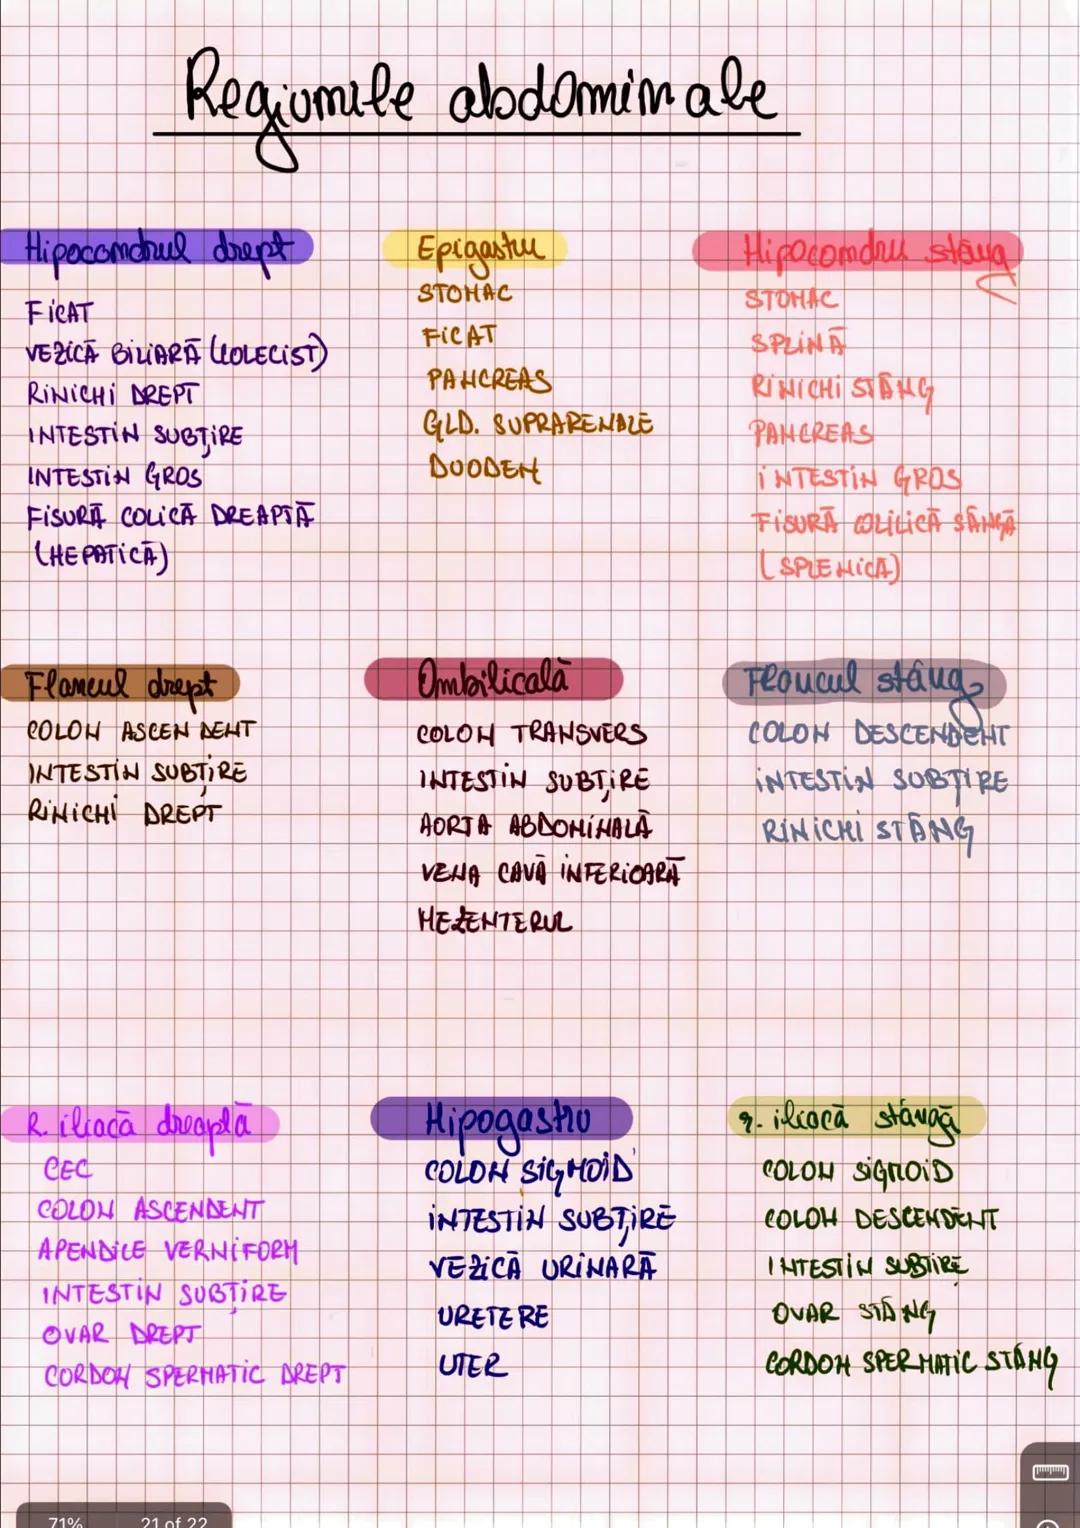 Regiunile abdominale
Hipocondrul drept
FICAT
VEZICĂ BILIARĂ (COLECIST)
RINICHI DREPT
INTESTIN SUBȚIRE
INTESTIN GROS
FISURĂ COLICĂ DREAPTĂ
(HEPATICĂ)
Epigastru
STOMAC
FICAT
PANCREAS
GLD. SUPRARENALE
DUODEN
Hipocondru stâng
STOMAC
SPLINĂ
RINICHI STÂNG
PANCREAS
INTESTIN GROS
FISURĂ COLILICĂ SÂNGĂ
(SPLENICA)
Flancul drept
COLON ASCENDENT
INTESTIN SUBȚIRE
RINICHI DREPT
Ombilicală
COLON TRANSVERS
INTESTIN SUBȚIRE
AORTA ABDOMINALĂ
VENA CAVĂ INFERIOARĂ
MEZENTERUL
Flancul stâng
COLON DESCENDENT
INTESTIN SUBȚIRE
RINICHI STÂNG
R. iliacă dreaptă
CEC
COLON ASCENDENT
APENDICE VERNIFORM
INTESTIN SUBȚIRE
OVAR DREPT
CORDON SPERMATIC DREPT
Hipogastru
COLON SIGMOID
INTESTIN SUBȚIRE
VEZICĂ URINARĂ
URETERE
UTER
r. iliacă stângă
COLON SIGMOID
COLON DESCENDENT
INTESTIN SUBȚIRE
OVAR STÂNG
CORDON SPERMATIC STÂNG
71% 21 of 22